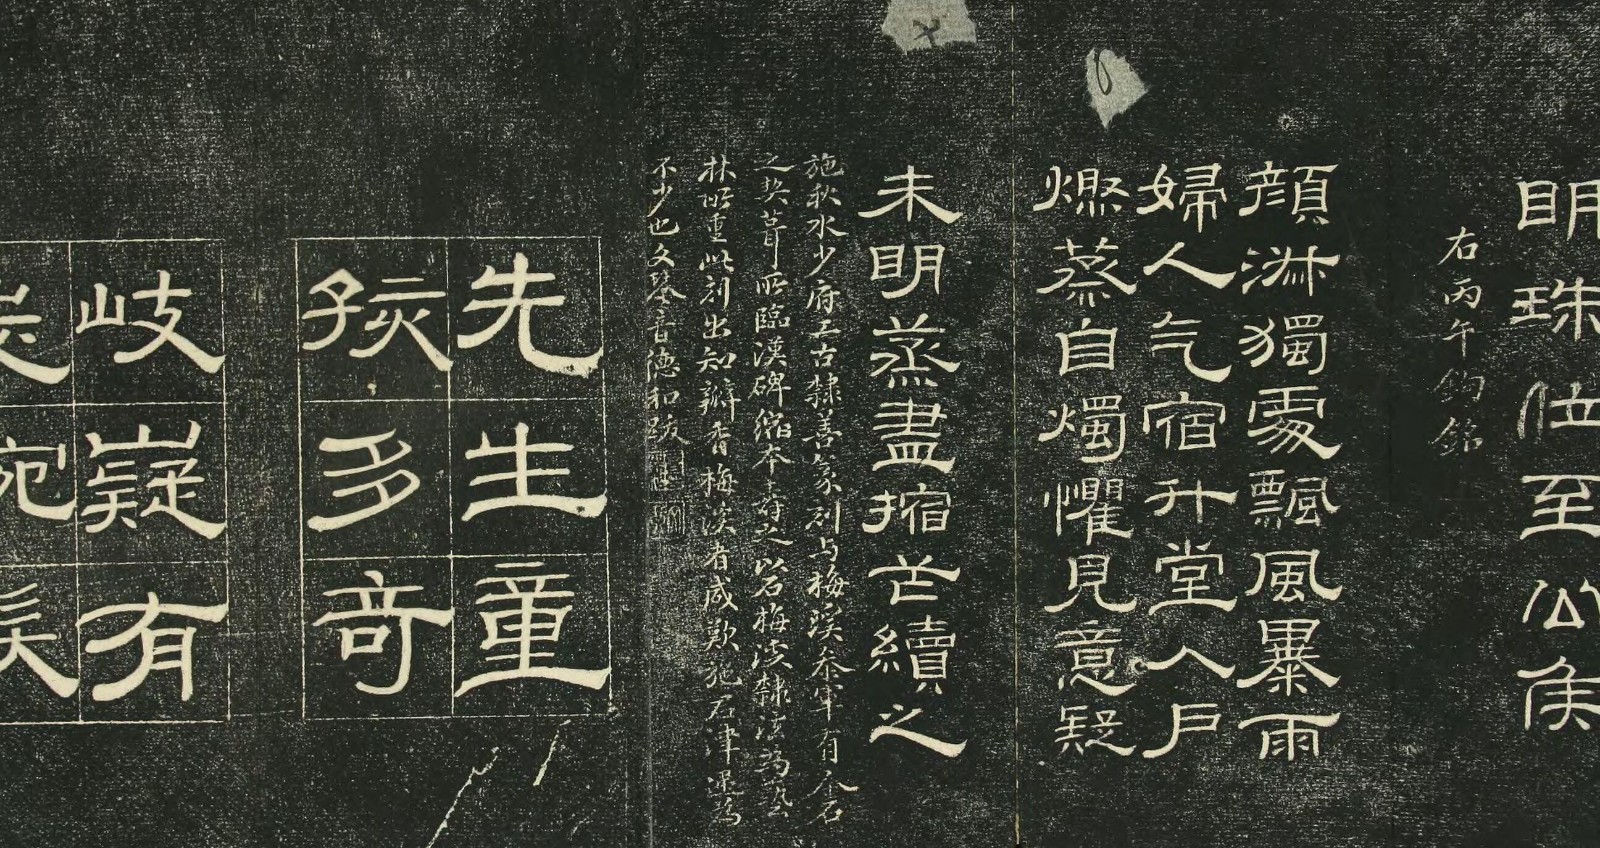 明珠位至公侯
右丙午鉤銘
顔淋獨處飄風暴雨
婦人气宿升堂入戶
燃蒸自燭懼見意疑
未明蒸盡摍苫續之
施秋水少府工古隸善篆刻与梅溪參軍有金石
之契葺所臨漢碑縮本壽之以石梅溪隸法為藝
林所重此刻出知瓣香梅溪者咸歎施君津逮為
不少也文琴音德和跋
先生童
孩多奇
岐嶷有